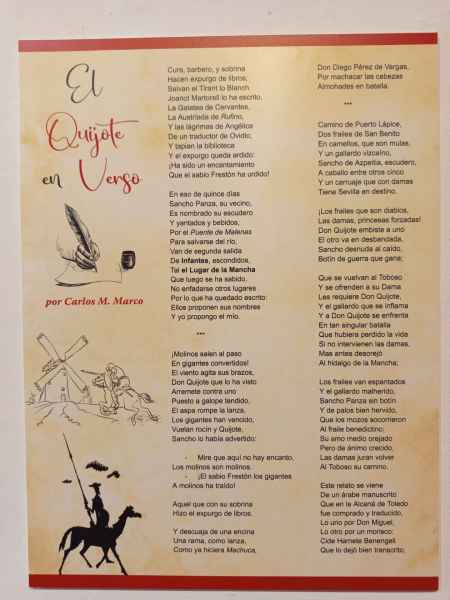 El
Quijote
en Verso
por Carlos M. Marco
Cura, barbero, y sobrina
Hacen expurgo de libros;
Salvan el Tirant lo Blanch
Joanot Martorell lo ha escrito.
La Galatea de Cervantes,
La Austríada de Rufino,
Y las lágrimas de Angélica
De un traductor de Ovidio;
Y tapian la biblioteca
Y el expurgo queda ardido:
¡Ha sido un encantamiento
Que el sabio Frestón ha urdido!
En eso de quince días
Sancho Panza, su vecino,
Es nombrado su escudero
Y yantados y bebidos,
Por el Puente de Melenas
Para salvarse del río,
Van de segunda salida
De Infantes, escondidos,
Tal el Lugar de la Mancha
Que luego se ha sabido.
No enfadarse otros lugares
Por lo que ha quedado escrito:
Ellos proponen sus nombres
Y yo propongo el mío.
***
¡Molinos salen al paso
En gigantes convertidos!
El viento agita sus brazos,
Don Quijote que lo ha visto
Arremete contra uno
Puesto a galope tendido,
El aspa rompe la lanza,
Los gigantes han vencido,
Vuelan rocín y Quijote,
Sancho lo había advertido:
- Mire que aquí no hay encanto,
Los molinos son molinos.
- ¡El sabio Frestón los gigantes
A molinos ha traído!
Aquel que con su sobrina
Hizo el expurgo de libros.
Y descuaja de una encina
Una rama, como lanza,
Como ya hiciera Machuca,
Don Diego Pérez de Vargas,
Por machacar las cabezas
Almohades en batalla.
***
Camino de Puerto Lápice,
Dos frailes de San Benito
En camellos, que son mulas,
Y un gallardo vizcaíno,
Sancho de Azpeitia, escudero,
A caballo entre otros cinco
Y un carruaje que con damas
Tiene Sevilla en destino.
¡Los frailes que son diablos,
Las damas, princesas forzadas!
Don Quijote embiste a uno
El otro va en desbandada,
Sancho desnuda al caído,
Botín de guerra que gana;
Que se vuelvan al Toboso
Y se ofrenden a su Dama
Les requiere Don Quijote,
Y el gallardo que se inflama
Y a Don Quijote se enfrenta
En tan singular batalla
Que hubiera perdido la vida
Si no intervienen las damas,
Mas antes desorejó
Al hidalgo de la Mancha;
Los frailes van espantados
Y el gallardo malherido,
Sancho Panza sin botín
Y de palos bien hervido,
Que los mozos socorrieron
Al fraile benedictino;
Su amo medio orejado
Pero de ánimo crecido,
Las damas juran volver
Al Toboso su camino.
Este relato se viene
De un árabe manuscrito
Que en le Alcaná de Toledo
fue comprado y traducido,
Lo uno por Don Miguel,
Lo otro por un morisco:
Cide Hamete Benengeli
Que lo dejó bien transcrito,